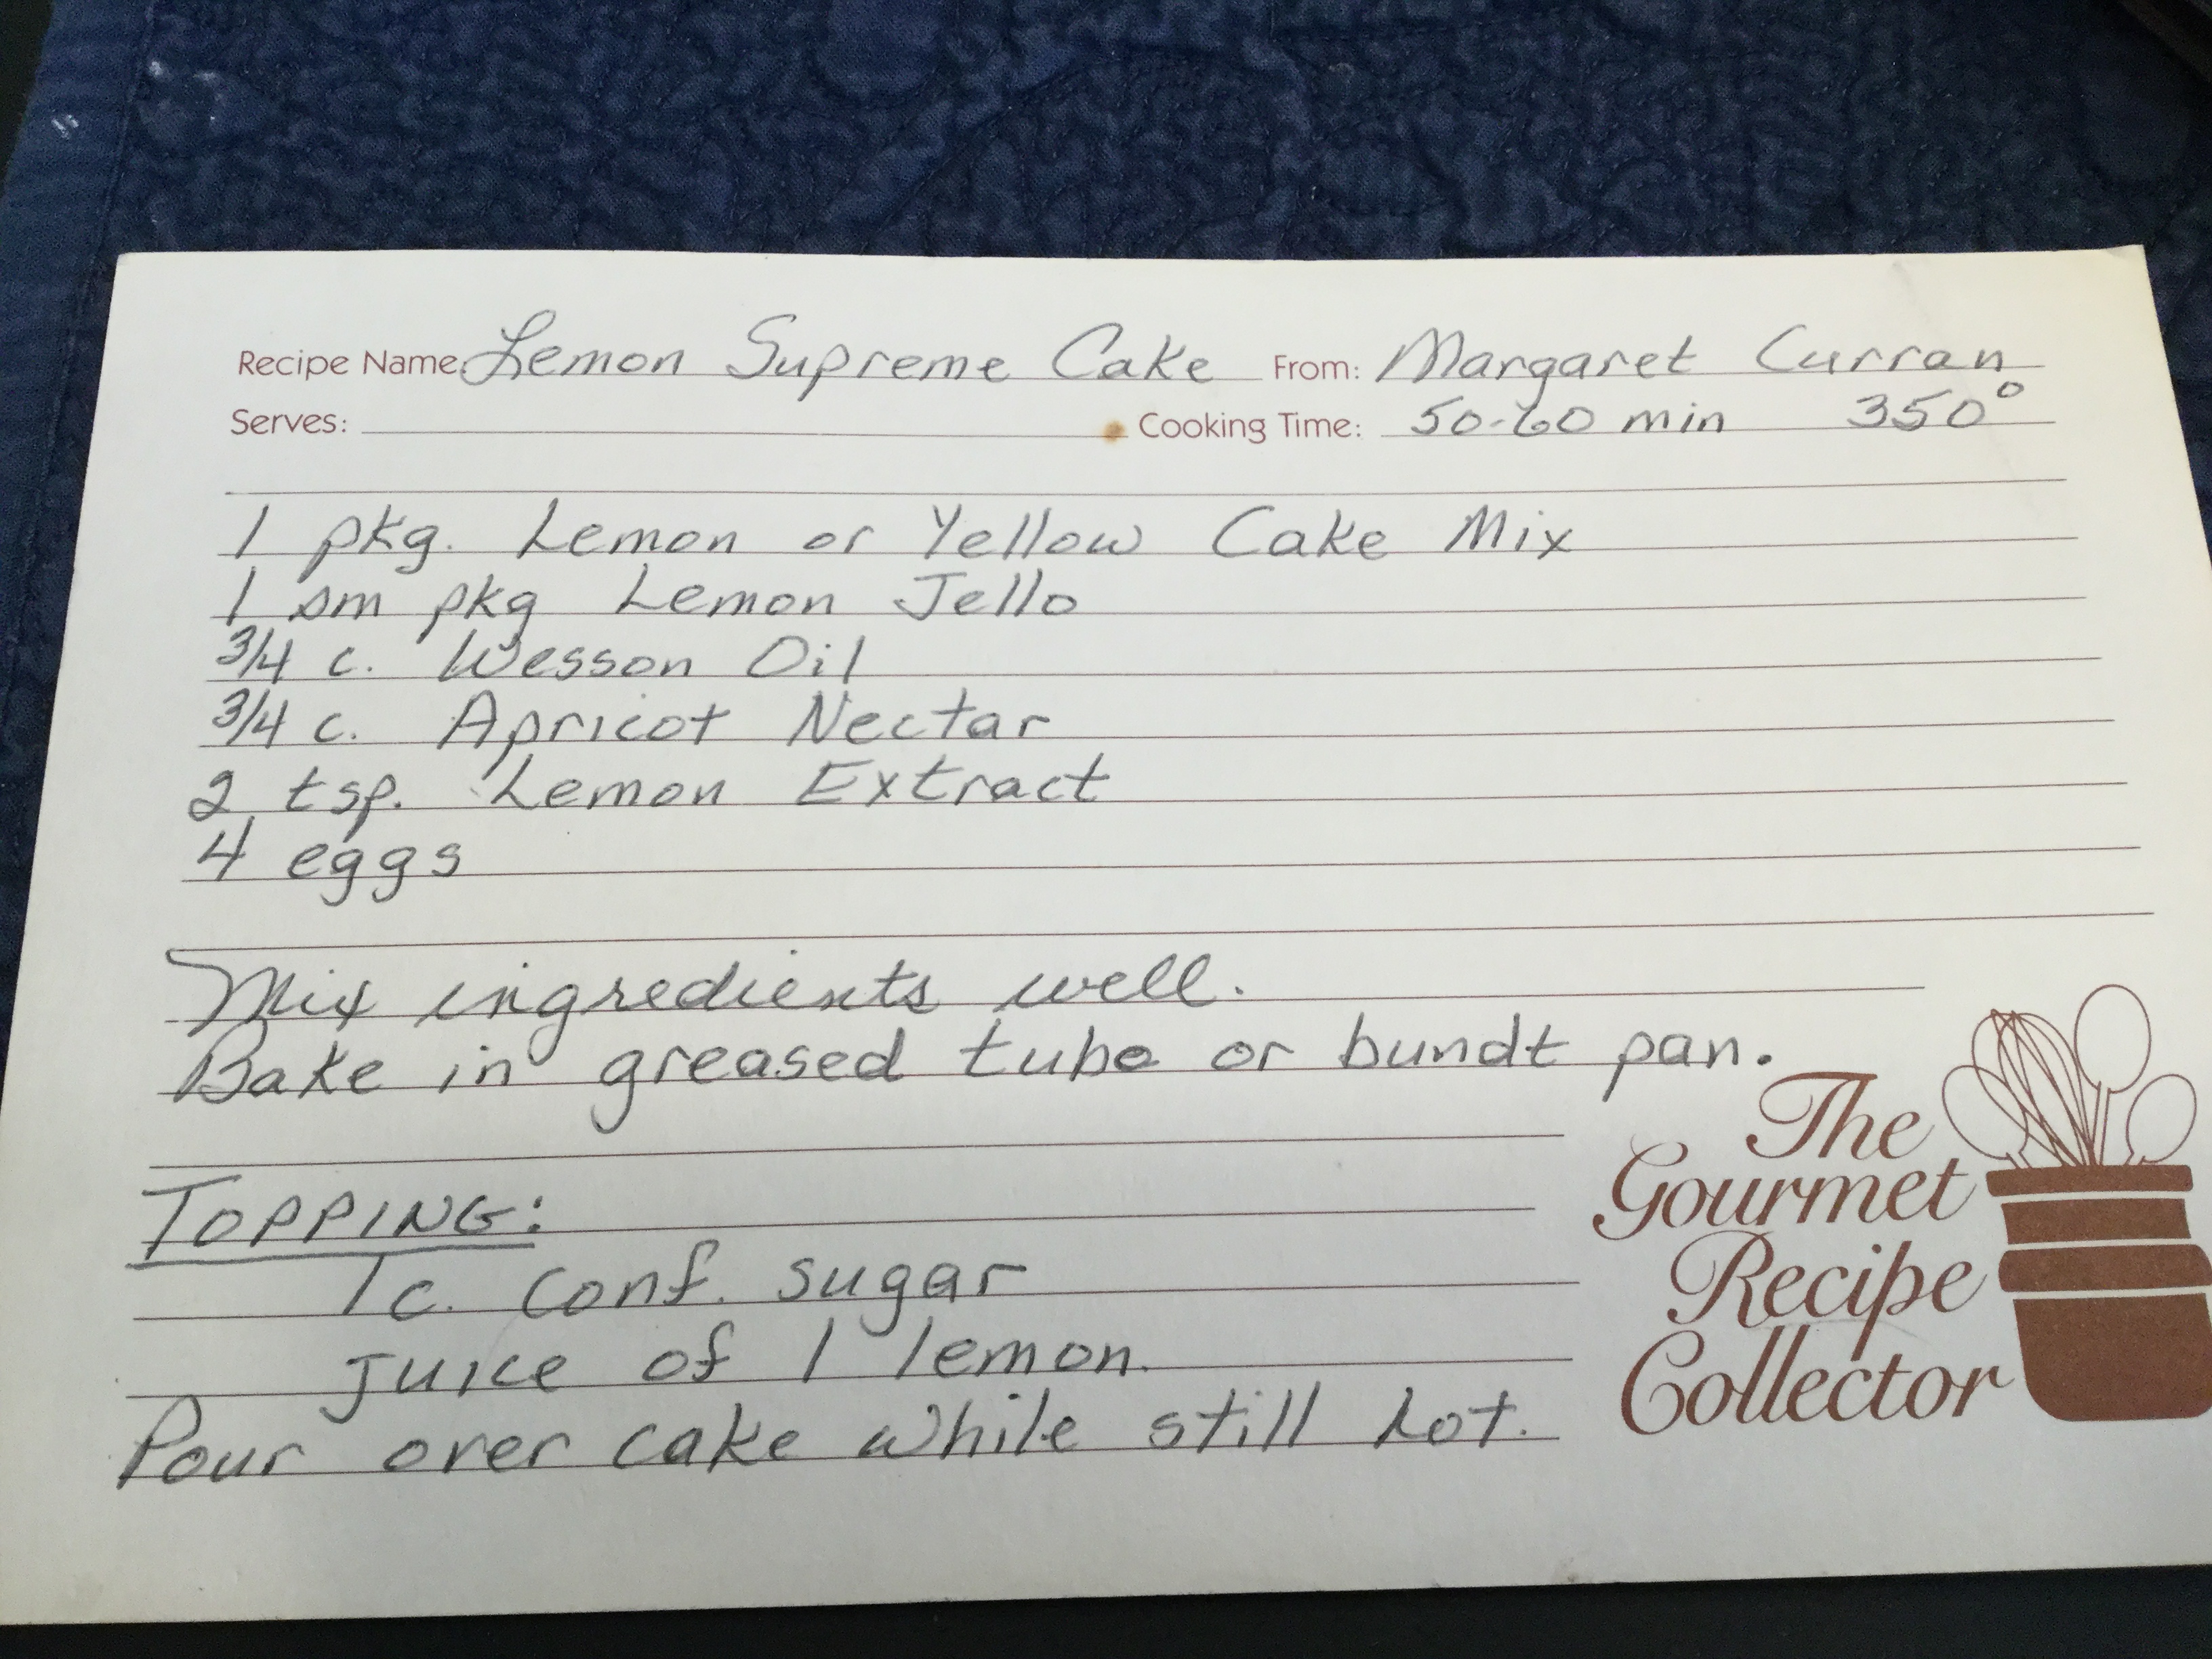 Recipe Name: Lemon Supreme Cake From: Margaret Curran
Serves: Cooking Time: 50-60 min 350°
1 pkg. Lemon or Yellow Cake Mix
1 sm pkg Lemon Jello
3/4 c. Wesson Oil
3/4 c. Apricot Nectar
2 tsp. Lemon Extract
4 eggs
Mix ingredients well.
Bake in greased tube or bundt pan.
TOPPING:
1 c. conf. sugar
juice of 1 lemon.
Pour over cake while still hot.
The
Gourmet
Recipe
Collector